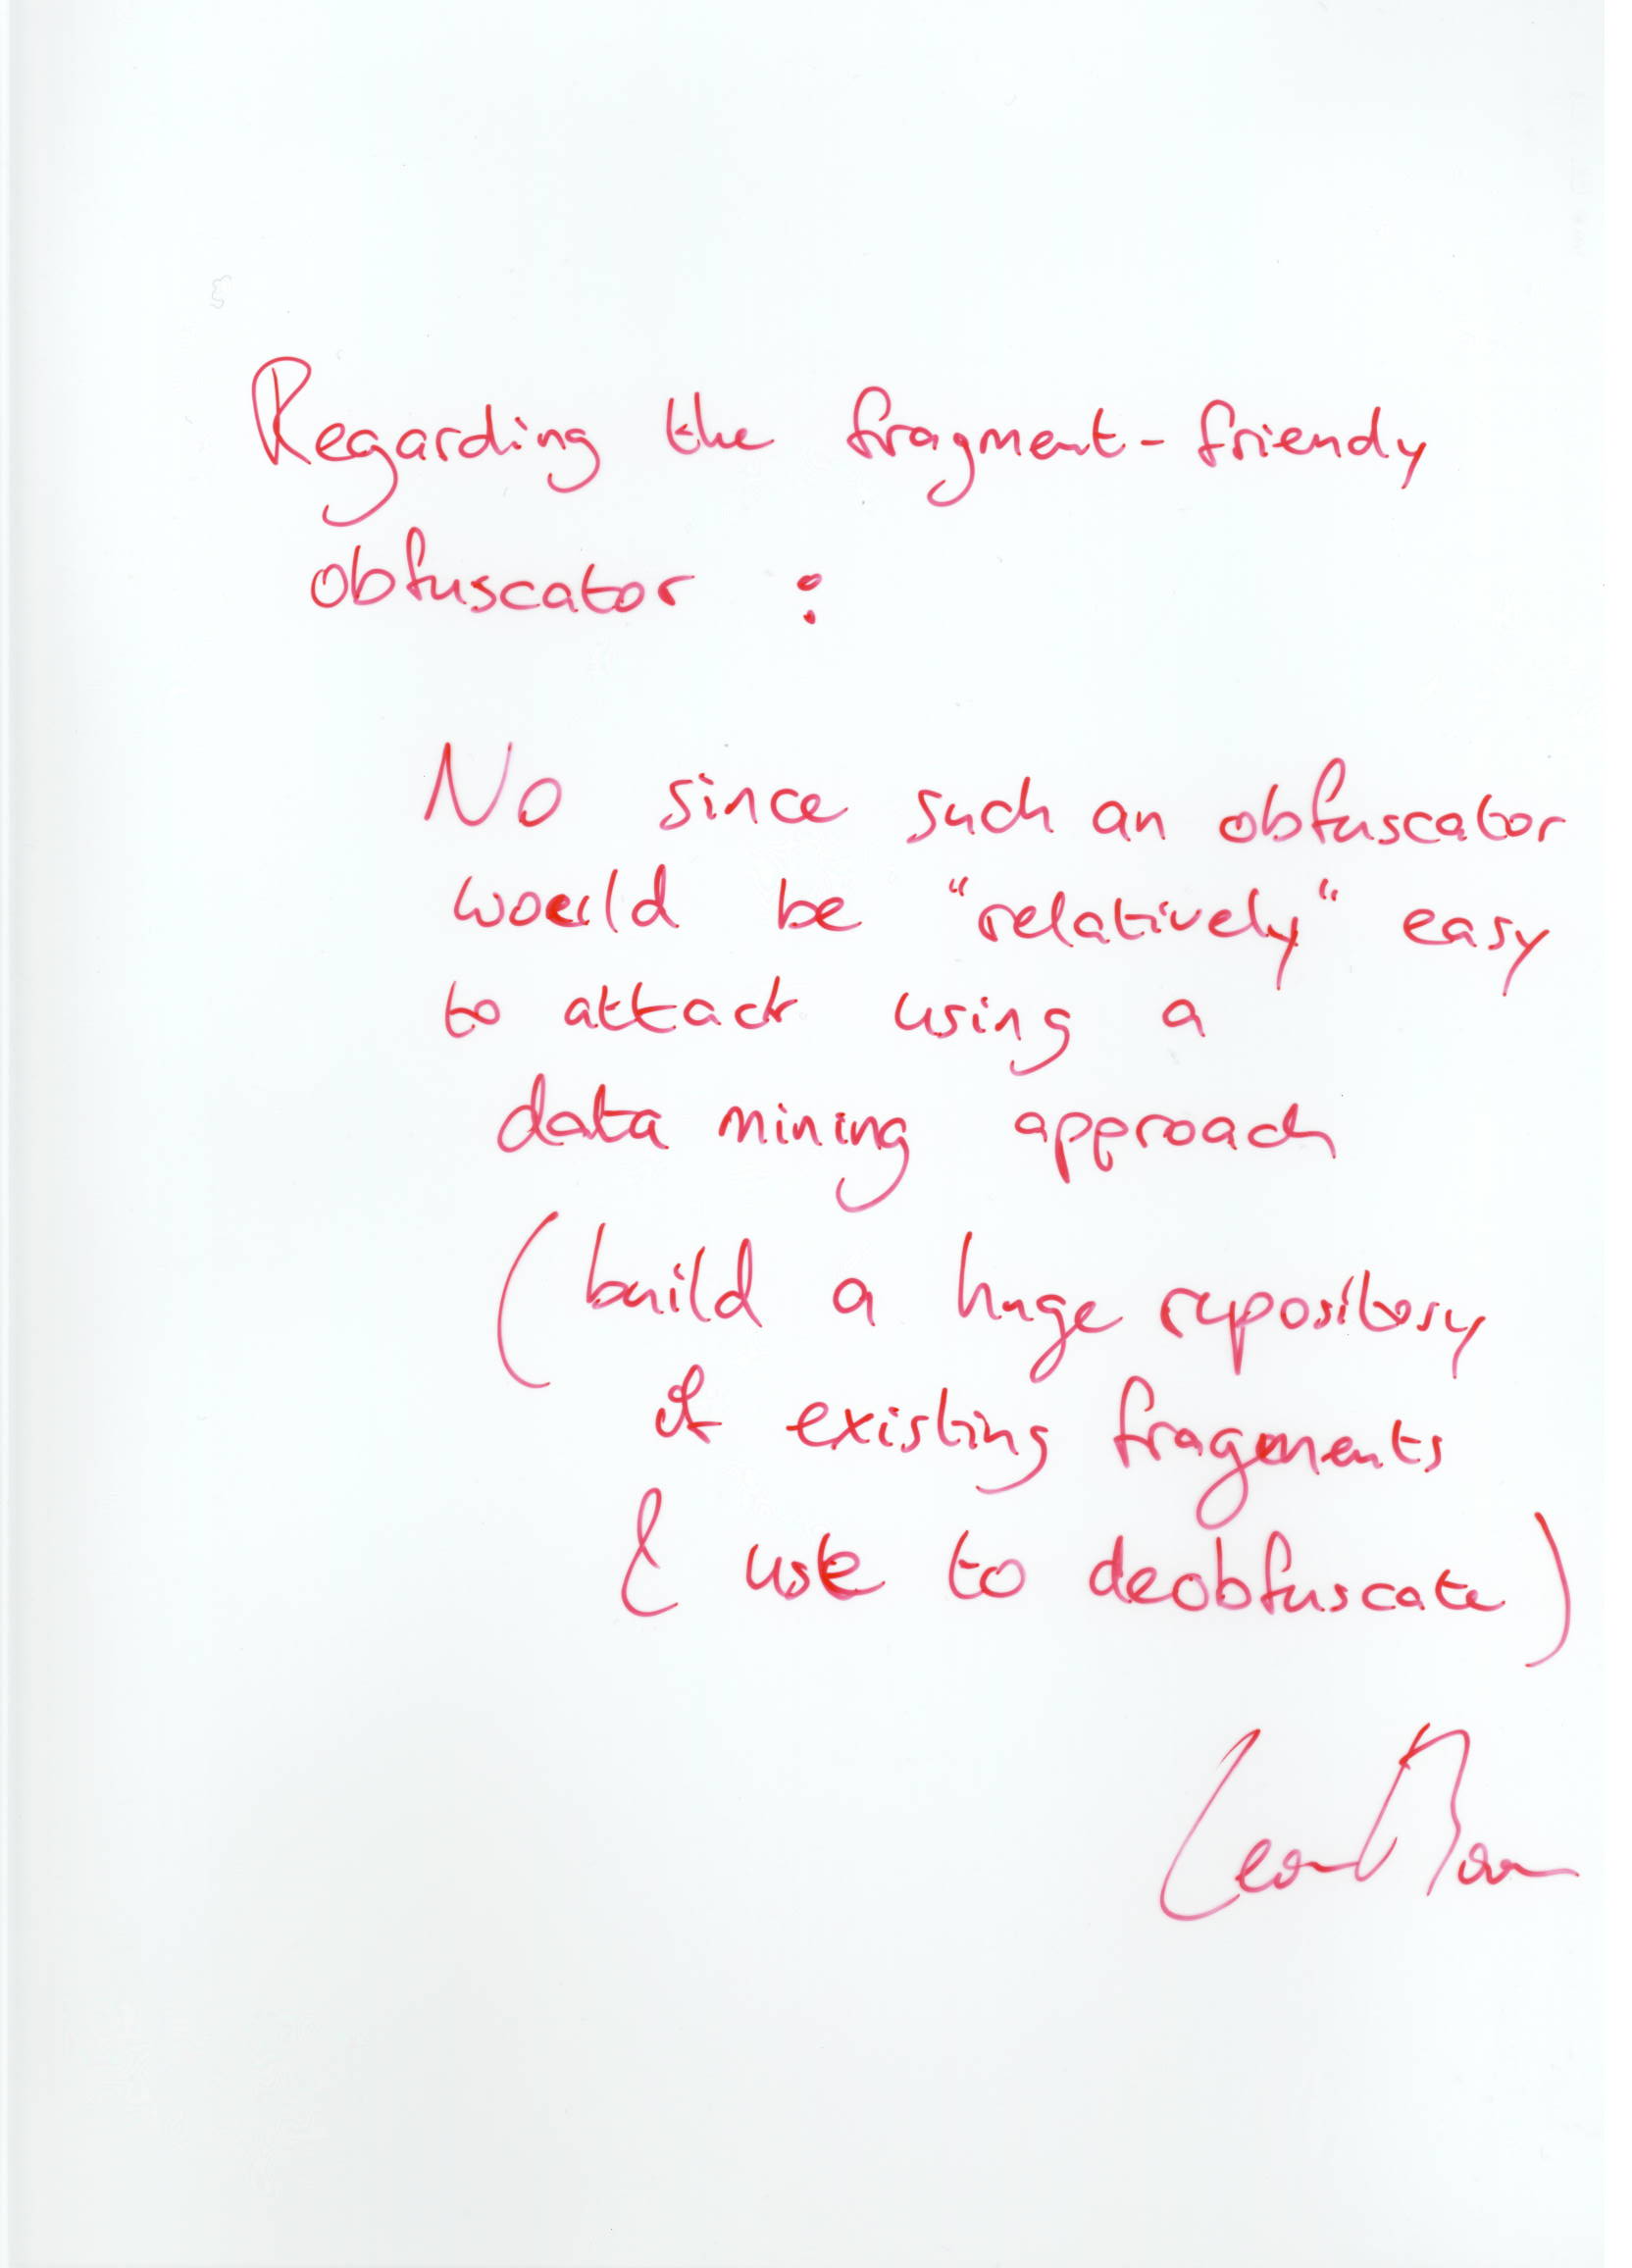 Regarding the fragment-friendy
obfuscator :
No since such an obfuscator
would be "relatively" easy
to attack using a
data mining approach
(build a huge repository
of existing fragments
& use to deobfuscate)